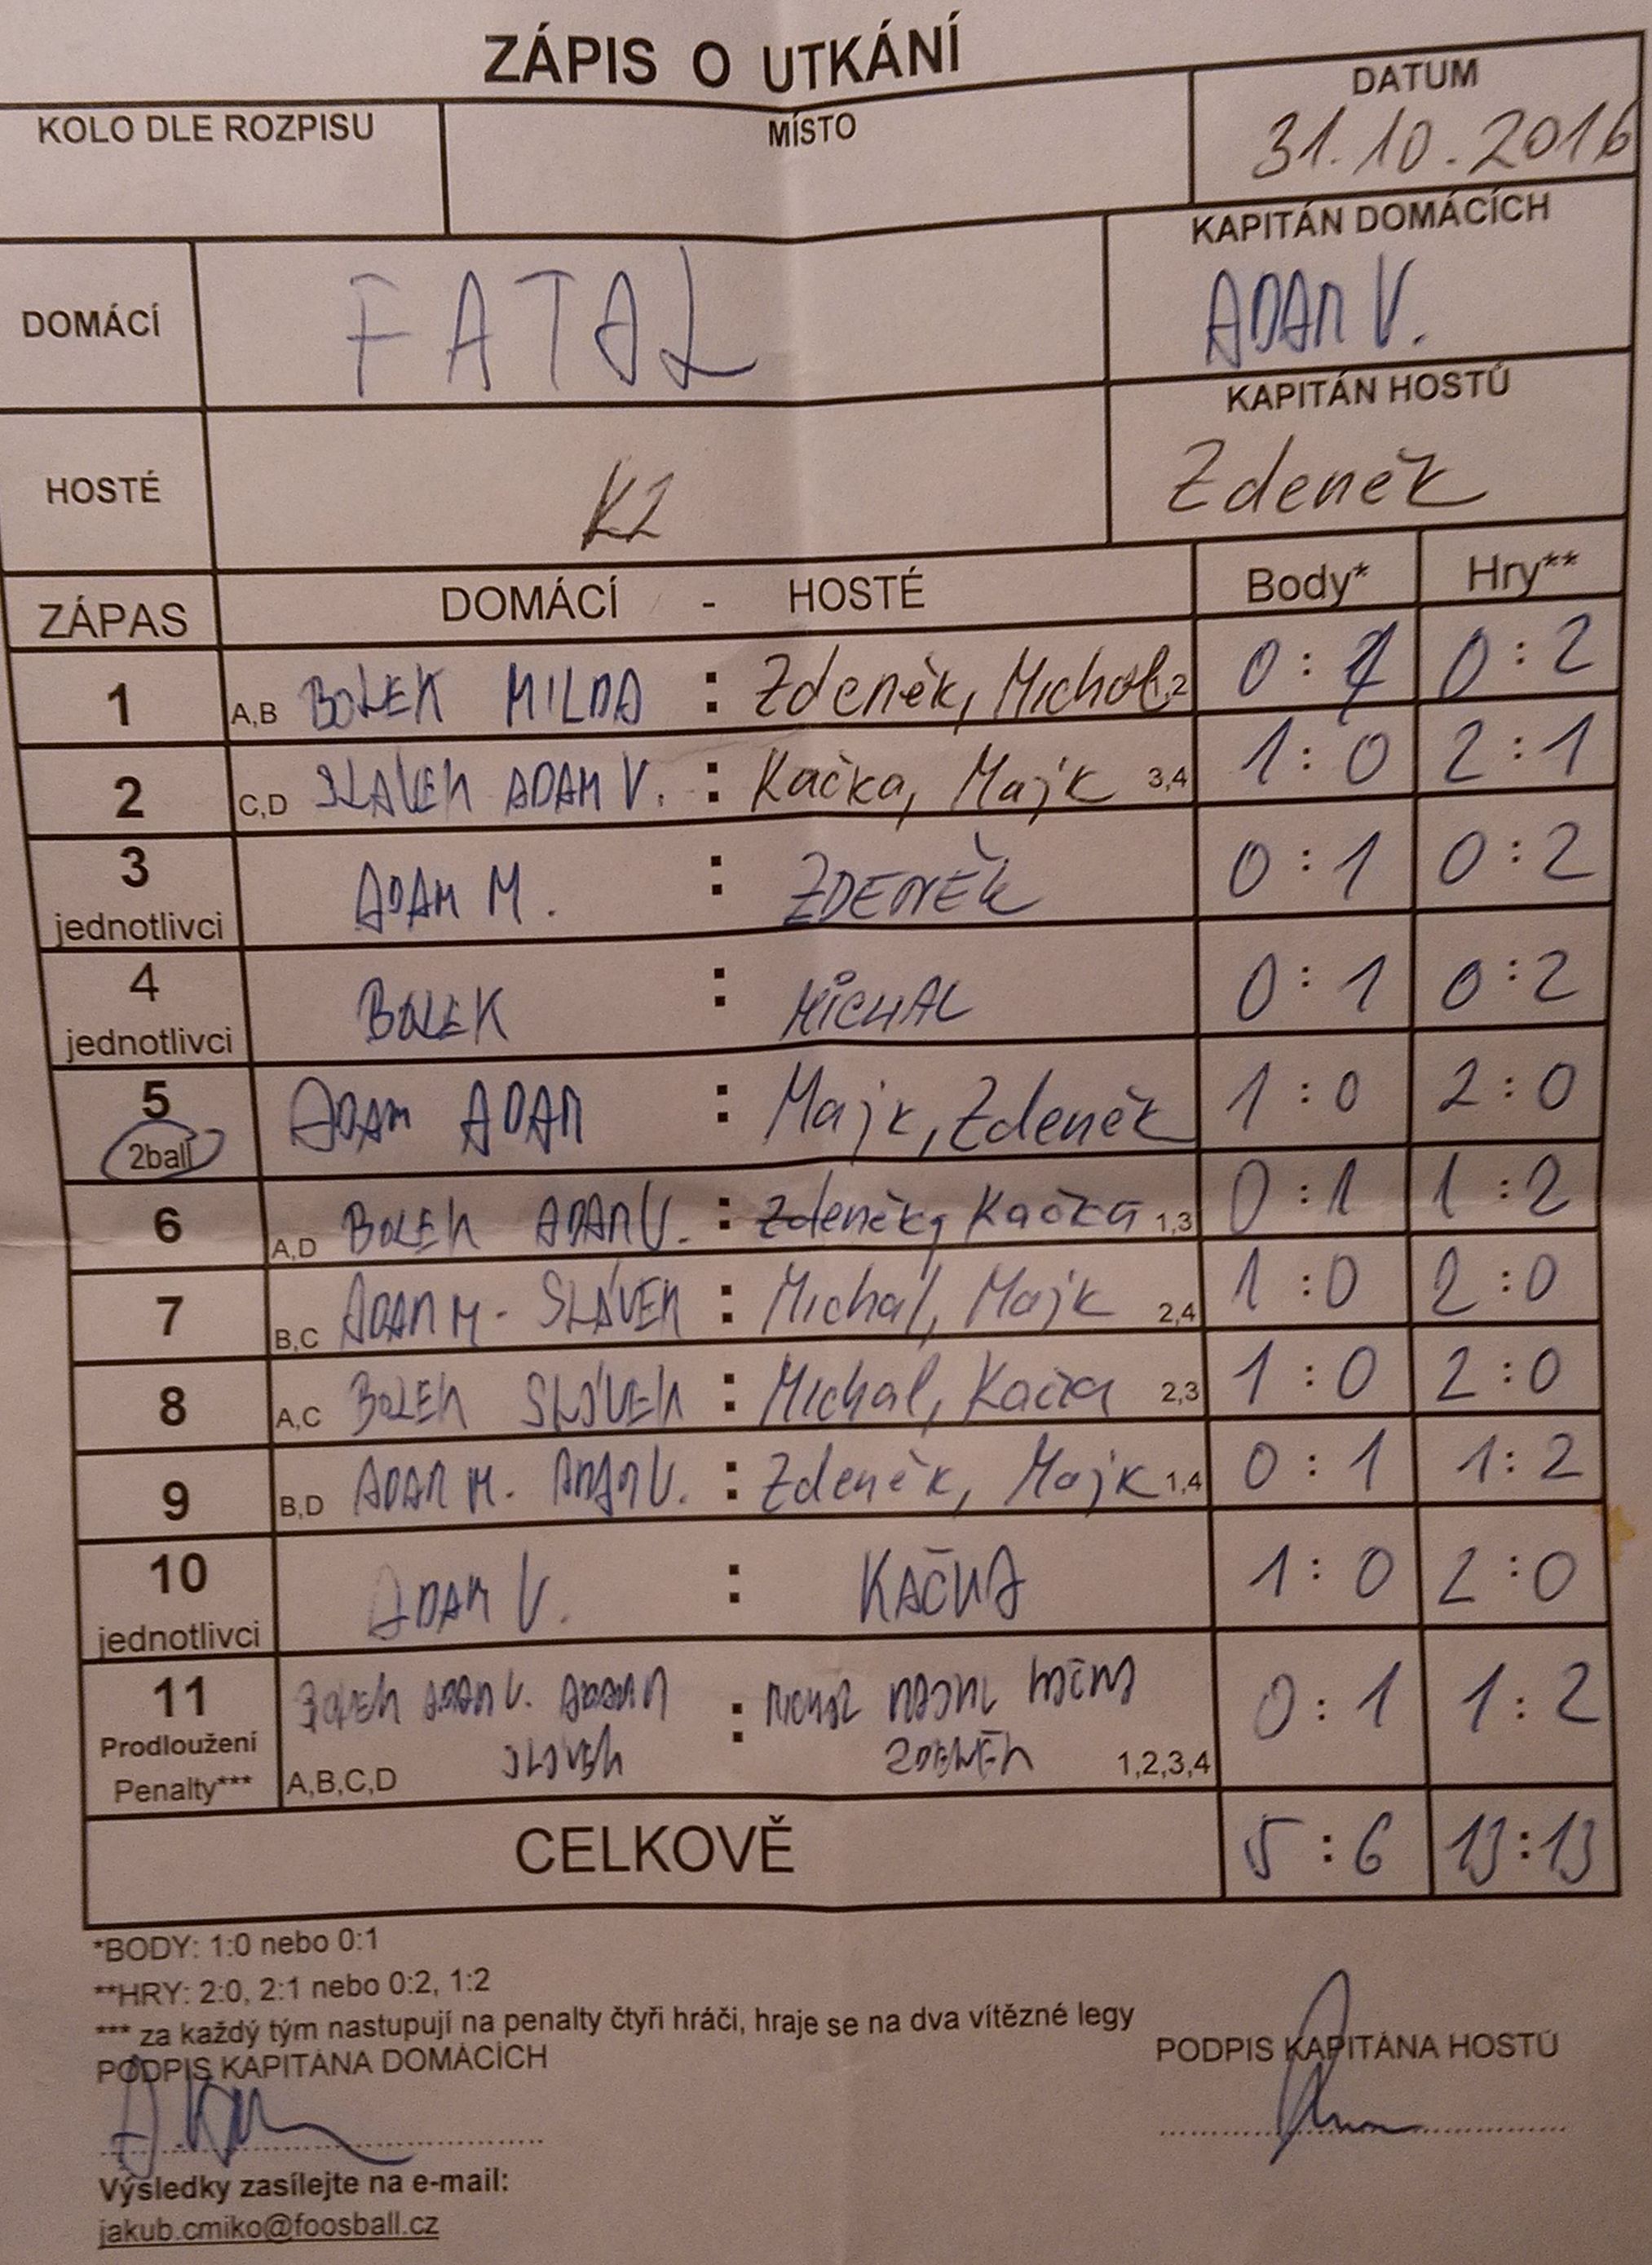 ZÁPIS O UTKÁNÍ
KOLO DLE ROZPISU MÍSTO DATUM
31.10.2016
DOMÁCÍ FATAL KAPITÁN DOMÁCÍCH
ADAM V.
HOSTÉ K2 KAPITÁN HOSTŮ
Zdeněk
ZÁPAS DOMÁCÍ - HOSTÉ Body* Hry**
1 A,B BOLEK MILDA : Zdeněk, Michal 1,2 0:1 0:2
2 C,D SLÁVEK ADAM V. : Kačka, Majk 3,4 1:0 2:1
3 jednotlivci ADAM M. : ZDENĚK 0:1 0:2
4 jednotlivci BOLEK : MICHAL 0:1 0:2
5 2ball ADAM ADAM : Majk, Zdeněk 1:0 2:0
6 A,D BOLEK ADAM V. : Zdeněk, Kačka 1,3 0:1 1:2
7 B,C ADAM M - SLÁVEK : Michal, Majk 2,4 1:0 2:0
8 A,C BOLEK SLÁVEK : Michal, Kačka 2,3 1:0 2:0
9 B,D ADAM M. ADAM V. : Zdeněk, Majk 1,4 0:1 1:2
10 jednotlivci ADAM V. : KAČKA 1:0 2:0
11 BOLEK ADAM V. ADAM M : MICHAL MAJK KAČKA 0:1 1:2
Prodloužení SLÁVEK ZDENĚK
Penalty*** A,B,C,D 1,2,3,4
CELKOVĚ 5:6 13:13
*BODY: 1:0 nebo 0:1
**HRY: 2:0, 2:1 nebo 0:2, 1:2
*** za každý tým nastupují na penalty čtyři hráči, hraje se na dva vítězné legy
PODPIS KAPITÁNA DOMÁCÍCH PODPIS KAPITÁNA HOSTŮ
Výsledky zasílejte na e-mail:
jakub.cmiko@foosball.cz